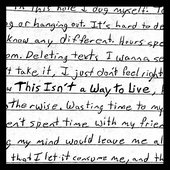 In this hole I dug myself. I
g or hanging out. It's hard to de
know any different. Hours spe
om. Deleting texts I wanna se
't take it, I just don't feel right
This Isn't a Way to Live,
therwise. Wasting time to my
en't spent time with my frien
g my mind would leave me al
that I let it consume me, and th